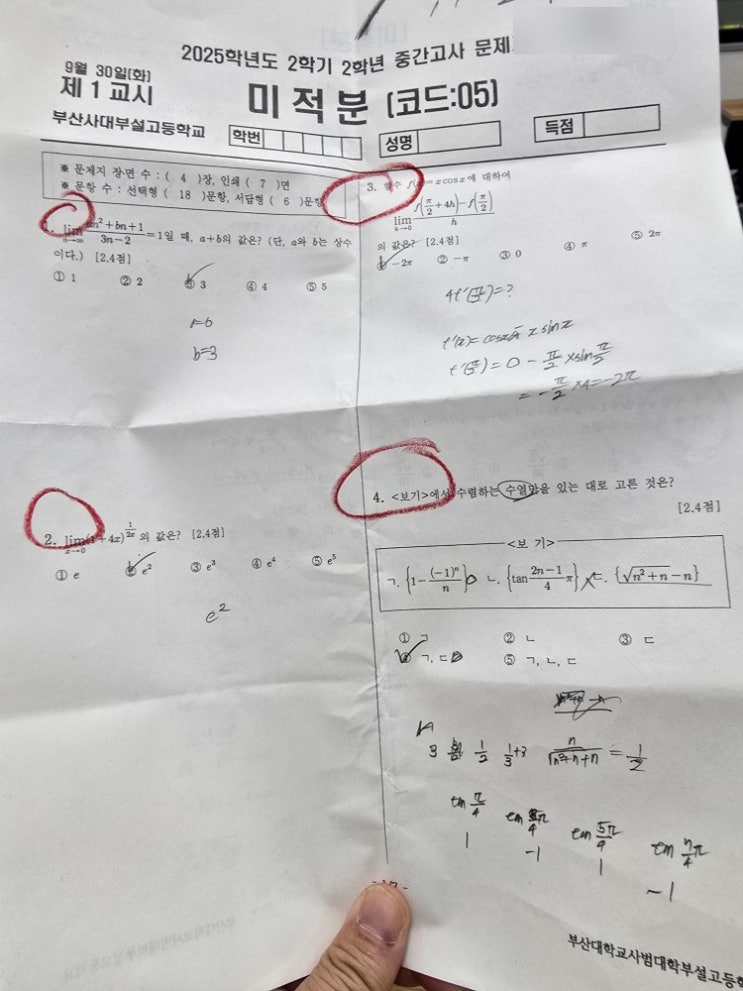 2025학년도 2학기 2학년 중간고사 문제
9월 30일(화)
제 1 교시
미적분 (코드:05)
부산사대부설고등학교
학번
성명
득점
※ 문제지 장면 수 : ( 4 )장, 인쇄 ( 7 )면
※ 문항 수 : 선택형 ( 18 )문항, 서답형 ( 6 )문항
lim n→∞ an²+bn+1 / 3n−2 =1일 때, a+b의 값은? (단, a와 b는 상수
이다.) [2.4점]
① 1 ② 2 ③ 3 ④ 4 ⑤ 5
b=3
2. lim x→0 (1+4x)^(1/2x) 의 값은? [2.4점]
① e ② e² ③ e³ ④ e⁴ ⑤ e⁵
e²
3. 함수 f(x)=x cos x에 대하여
lim h→0 f(π/2+4h)−f(π/2) / h
의 값은? [2.4점]
① −2π ② −π ③ 0 ④ π ⑤ 2π
4f'(π/2)=?
f'(x)= cosx − x sinx
f'(π/2)= 0 − π/2 × sin π/2
= −π/2 ×4=−2π
4. <보기>에서 수렴하는 수열만을 있는 대로 고른 것은?
[2.4점]
<보 기>
ㄱ. {1−(−1)ⁿ/n} ㄴ. {tan (2n−1)/4 π} ㄷ. {√(n²+n)−n}
① ㄱ ② ㄴ ③ ㄷ
④ ㄱ, ㄷ ⑤ ㄱ, ㄴ, ㄷ
1/2 n/(√(n²+n)+n) = 1/2
tan π/4 tan 3π/4 tan 5π/4 tan 7π/4
1 −1 1 −1
부산대학교사범대학부설고등학